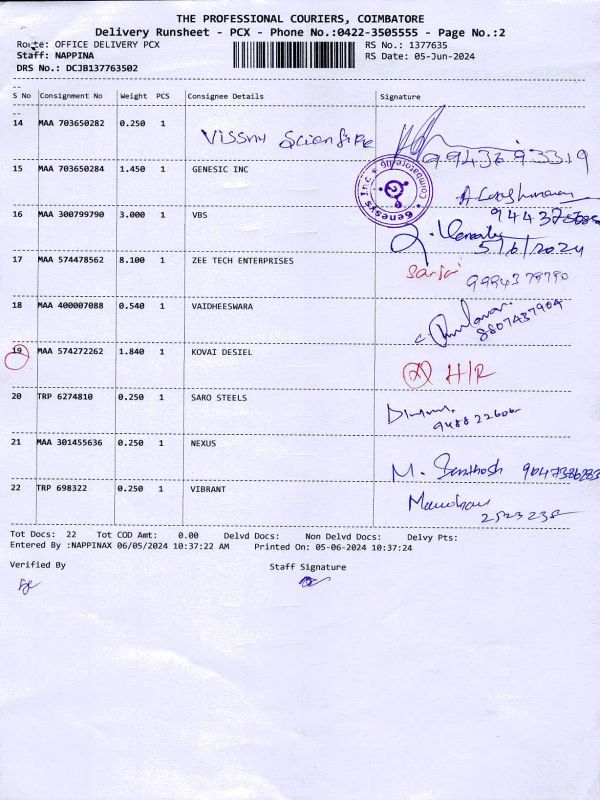 THE PROFESSIONAL COURIERS, COIMBATORE
Delivery Runsheet - PCX - Phone No.:0422-3505555 - Page No.:2
Route: OFFICE DELIVERY PCX RS No.: 1377635
Staff: NAPPINA RS Date: 05-Jun-2024
DRS No.: DCJB137763502
S No Consignment No Weight PCS Consignee Details Signature
14 MAA 703650282 0.250 1
15 MAA 703650284 1.450 1 GENESIC INC
16 MAA 300799790 3.000 1 VBS
5/6/2024
17 MAA 574478562 8.100 1 ZEE TECH ENTERPRISES
9994379790
18 MAA 400007088 0.540 1 VAIDHEESWARA
8807437904
19 MAA 574272262 1.840 1 KOVAI DESIEL H/R
20 TRP 6274810 0.250 1 SARO STEELS
21 MAA 301455636 0.250 1 NEXUS
M. Santhosh
22 TRP 698322 0.250 1 VIBRANT
Tot Docs: 22 Tot COD Amt: 0.00 Delvd Docs: Non Delvd Docs: Delvy Pts:
Entered By :NAPPINAX 06/05/2024 10:37:22 AM Printed On: 05-06-2024 10:37:24
Verified By Staff Signature